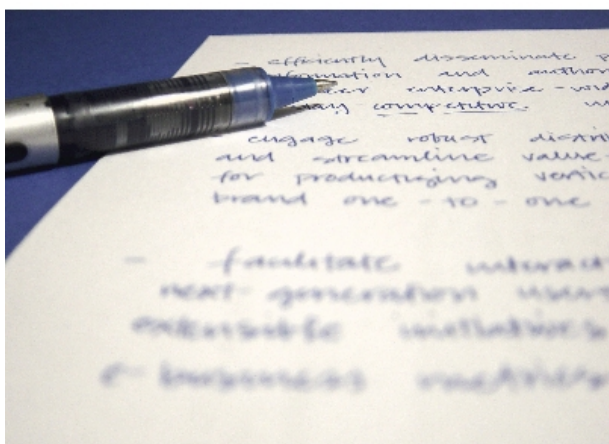 - efficiently disseminate
and
enterprise-wid
competitive.
engage robust distri
and streamline value
for productizing vertic
brand one-to-one
- facilitate interact
next-generation
extensible initiatives
e-business metrics